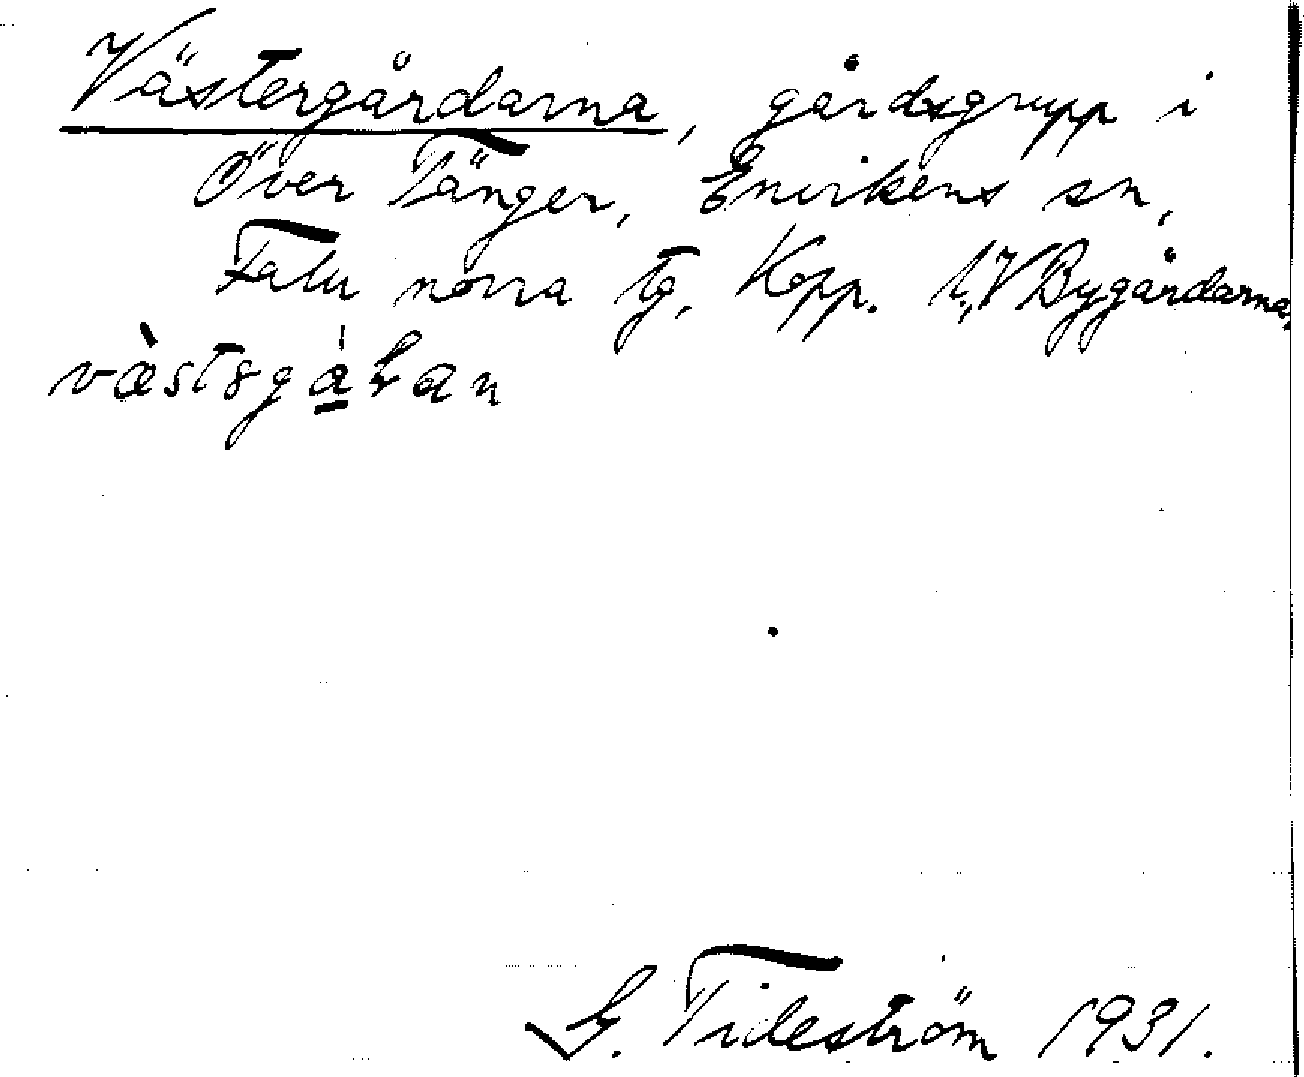 Västergårdarna, gårdsgrupp i
Över Tänger, Envikens sn,
Falu norra tg, Kopp. l, V Bygårdarna,
västsgáɫan
G. Tideström 1931.